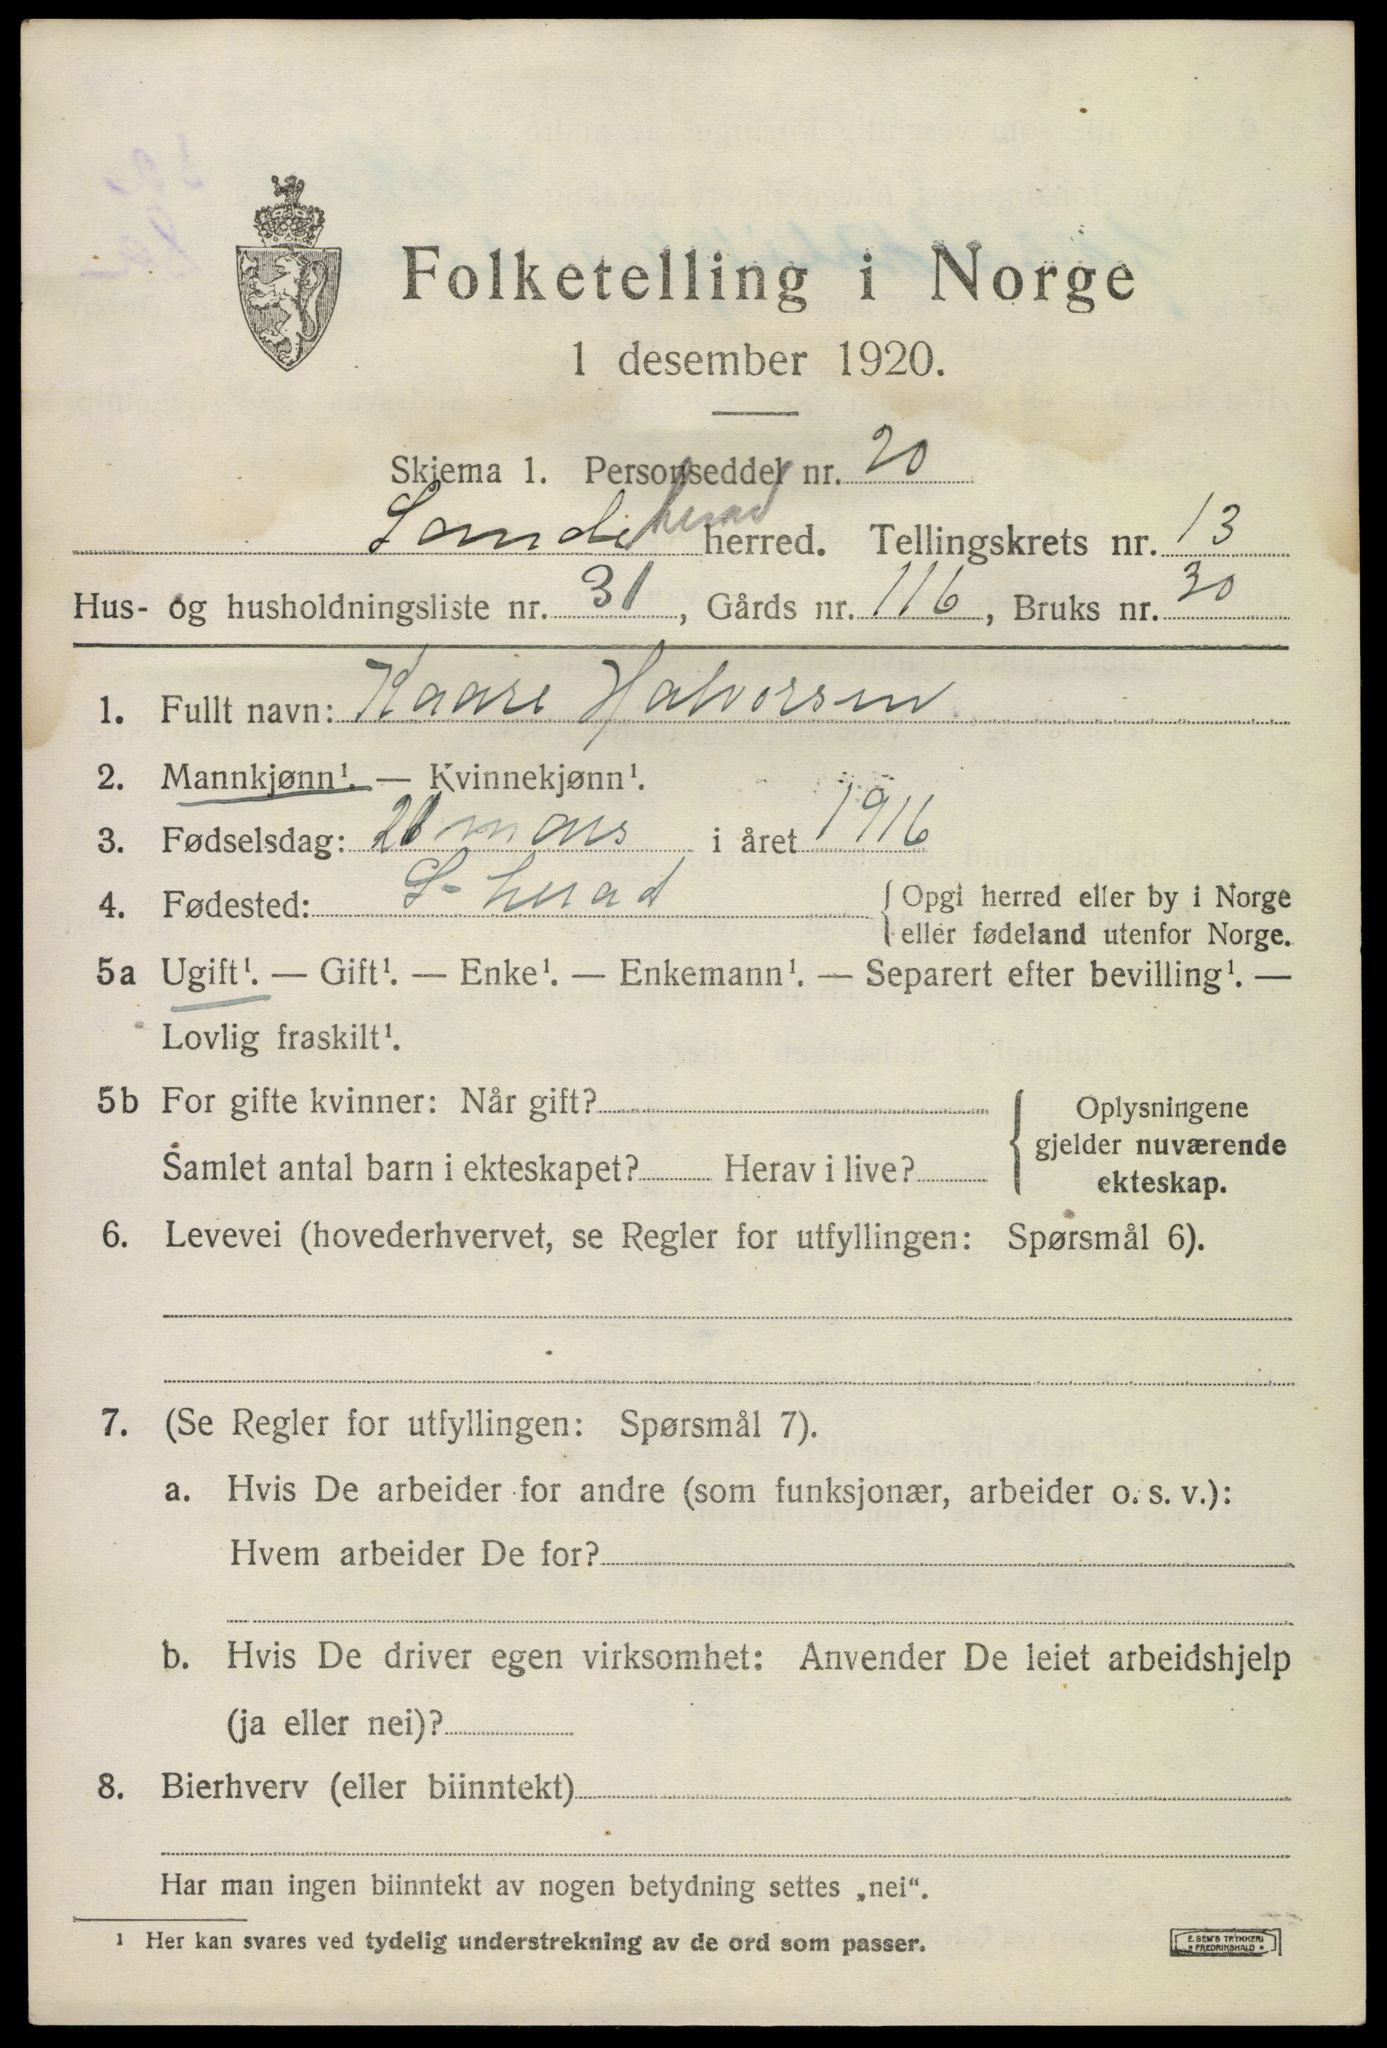 Folketelling i Norge
1 desember 1920.
Skjema 1. Personseddel nr. 20
Sandeherad herred. Tellingskrets nr. 13
Hus- og husholdningsliste nr. 31, Gårds nr. 116, Bruks nr. 30
1. Fullt navn: Kaare Halvorsen
2. Mannkjønn¹. — Kvinnekjønn¹.
3. Fødselsdag: 21 mars i året 1916
4. Fødested: S-herad { Opgi herred eller by i Norge
eller fødeland utenfor Norge.
5a Ugift¹. — Gift¹. — Enke¹. — Enkemann¹. — Separert efter bevilling¹. —
Lovlig fraskilt¹.
5b For gifte kvinner: Når gift?
Samlet antal barn i ekteskapet? Herav i live?
{ Oplysningene
gjelder nuværende
ekteskap.
6. Levevei (hovederhvervet, se Regler for utfyllingen: Spørsmål 6).
7. (Se Regler for utfyllingen: Spørsmål 7).
a. Hvis De arbeider for andre (som funksjonær, arbeider o. s. v.):
Hvem arbeider De for?
b. Hvis De driver egen virksomhet: Anvender De leiet arbeidshjelp
(ja eller nei)?
8. Bierhverv (eller biinntekt)
Har man ingen biinntekt av nogen betydning settes „nei“.
¹ Her kan svares ved tydelig understrekning av de ord som passer.
E. SEM'S TRYKKERI
• FREDRIKSHALD •